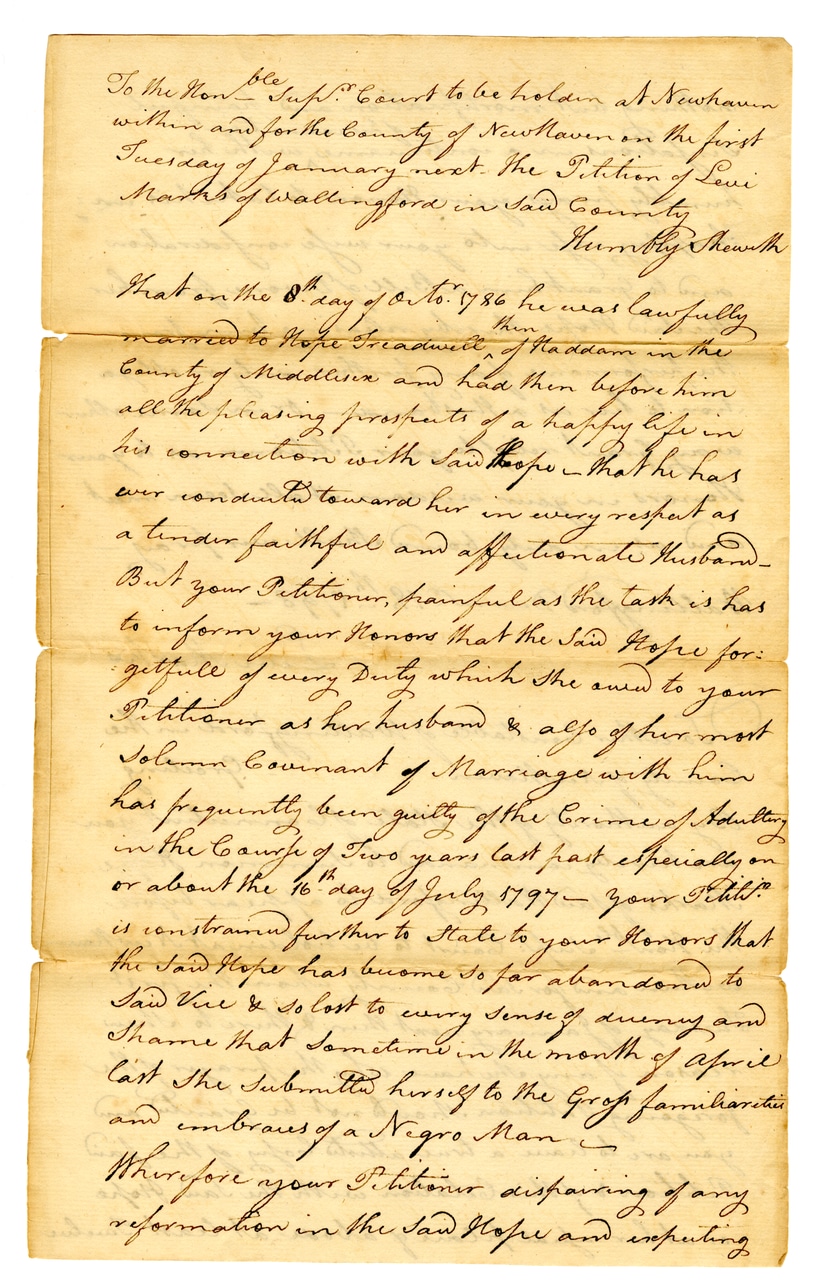 To the Hon.ble Supr. Court to be holden at Newhaven
within and for the County of New Haven on the first
Tuesday of January next. the Petition of Levi
Marks of Wallingford in Said County
Humbly Sheweth
That on the 8th day of Octor. 1786 he was lawfully
married to Hope Treadwell ^then of Haddam in the
County of Middlesex and had then before him
all the pleasing prospects of a happy life in
his connection with Said Hope – that he has
ever conducted toward her in every respect as
a tender faithful and affectionate Husband –
But your Petitioner, painful as the task is has
to inform your Honors that the Said Hope for:
:getfull of every Duty which She owed to your
Petitioner as her husband & also of her most
Solemn Covenant of Marriage with him
has frequently been guilty of the Crime of Adultery
in the Course of Two years last past especially on
or about the 16th day of July 1797 – your Petitir.
is constrained further to State to your Honors that
the Said Hope has become so far abandoned to
Said Vice & so lost to every sense of decency and
Shame that Sometime in the month of April
last She Submitted herself to the Gross familiarities
and embraces of a Negro Man –
Wherefore your Petitioner dispairing of any
reformation in the Said Hope and expecting